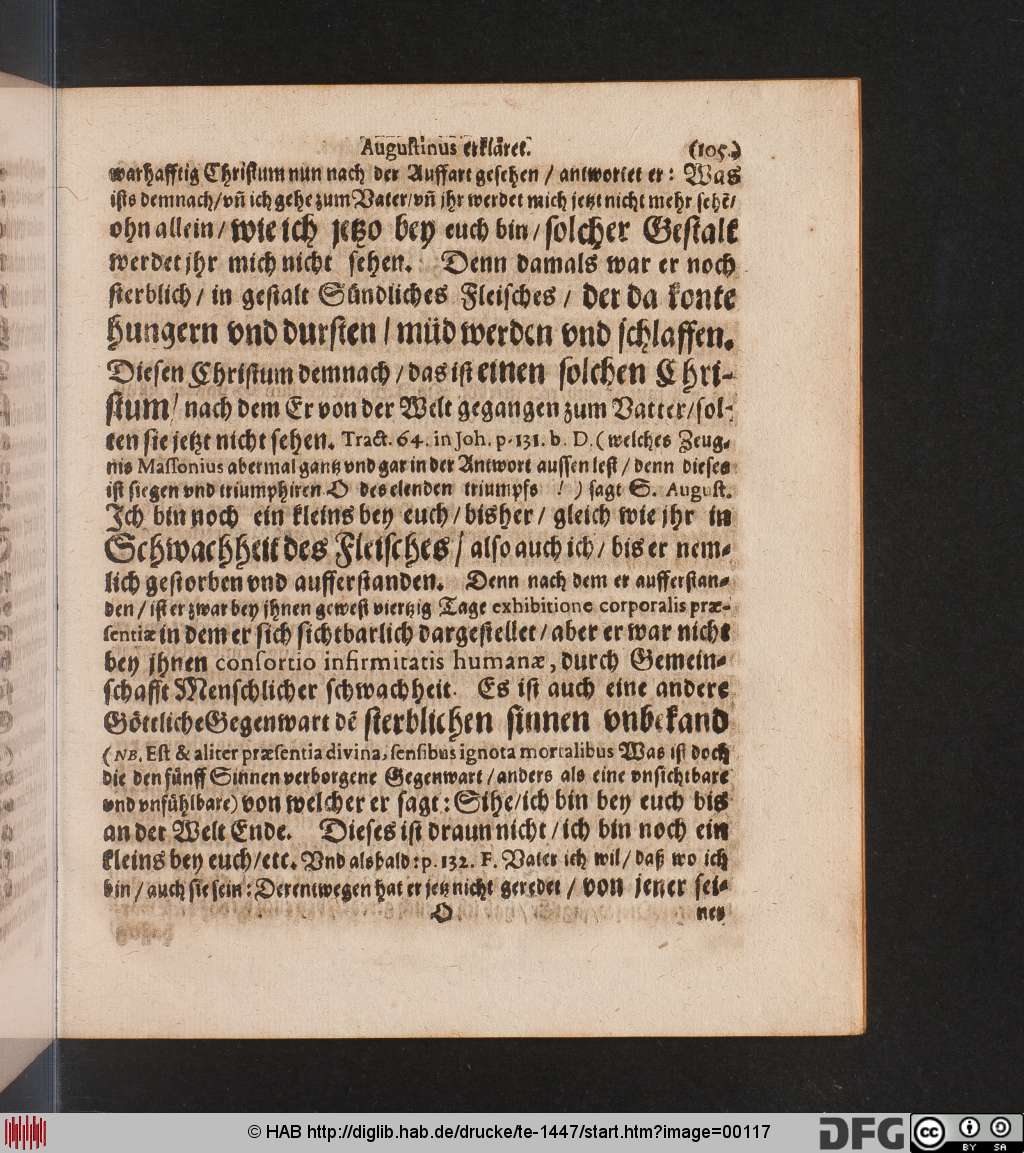 Augustinus erkläret. (105.)
warhafftig Christum nun nach der Auffart gesehen / antwortet er: Was
ists demnach/vn̄ ich gehe zum Vater/vn̄ jhr werdet mich jetzt nicht mehr sehē/
ohn allein/ wie ich jetzo bey euch bin/ solcher Gestalt
werdet jhr mich nicht sehen. Denn damals war er noch
sterblich/ in gestalt Sündliches Fleisches/ der da konte
hungern vnd dursten/ müd werden vnd schlaffen.
Diesen Christum demnach/ das ist einen solchen Chri-
stum/ nach dem Er von der Welt gegangen zum Vatter/sol-
ten sie jetzt nicht sehen. Tract. 64. in Joh. p. 131. b. D. (welches Zeug-
nis Massonius abermal gantz vnd gar in der Antwort aussen lest/ denn dieses
ist siegen vnd triumphiren O des elenden triumpfs !) sagt S. August.
Ich bin noch ein kleins bey euch/ bisher/ gleich wie jhr in
Schwachheit des Fleisches/ also auch ich/ bis er nem-
lich gestorben vnd aufferstanden. Denn nach dem er aufferstan-
den/ ist er zwar bey jhnen gewest viertzig Tage exhibitione corporalis præ-
sentiæ in dem er sich sichtbarlich dargestellet/ aber er war nicht
bey jhnen consortio infirmitatis humanæ, durch Gemein-
schafft Menschlicher schwachheit. Es ist auch eine andere
Göttliche Gegenwart dē sterblichen sinnen vnbekand
(NB. Est & aliter præsentia divina, sensibus ignota mortalibus Was ist doch
die den fünff Sinnen verborgene Gegenwart/ anders als eine vnsichtbare
vnd vnfühlbare) von welcher er sagt: Sihe/ich bin bey euch bis
an der Welt Ende. Dieses ist draun nicht/ ich bin noch ein
kleins bey euch/etc. Vnd alsbald: p. 132. F. Vater ich wil/ daß wo ich
bin/ auch sie sein: Derentwegen hat er jetz nicht geredet/ von jener sei-
O ner
© HAB http://diglib.hab.de/drucke/te-1447/start.htm?image=00117
DFG
cc BY SA